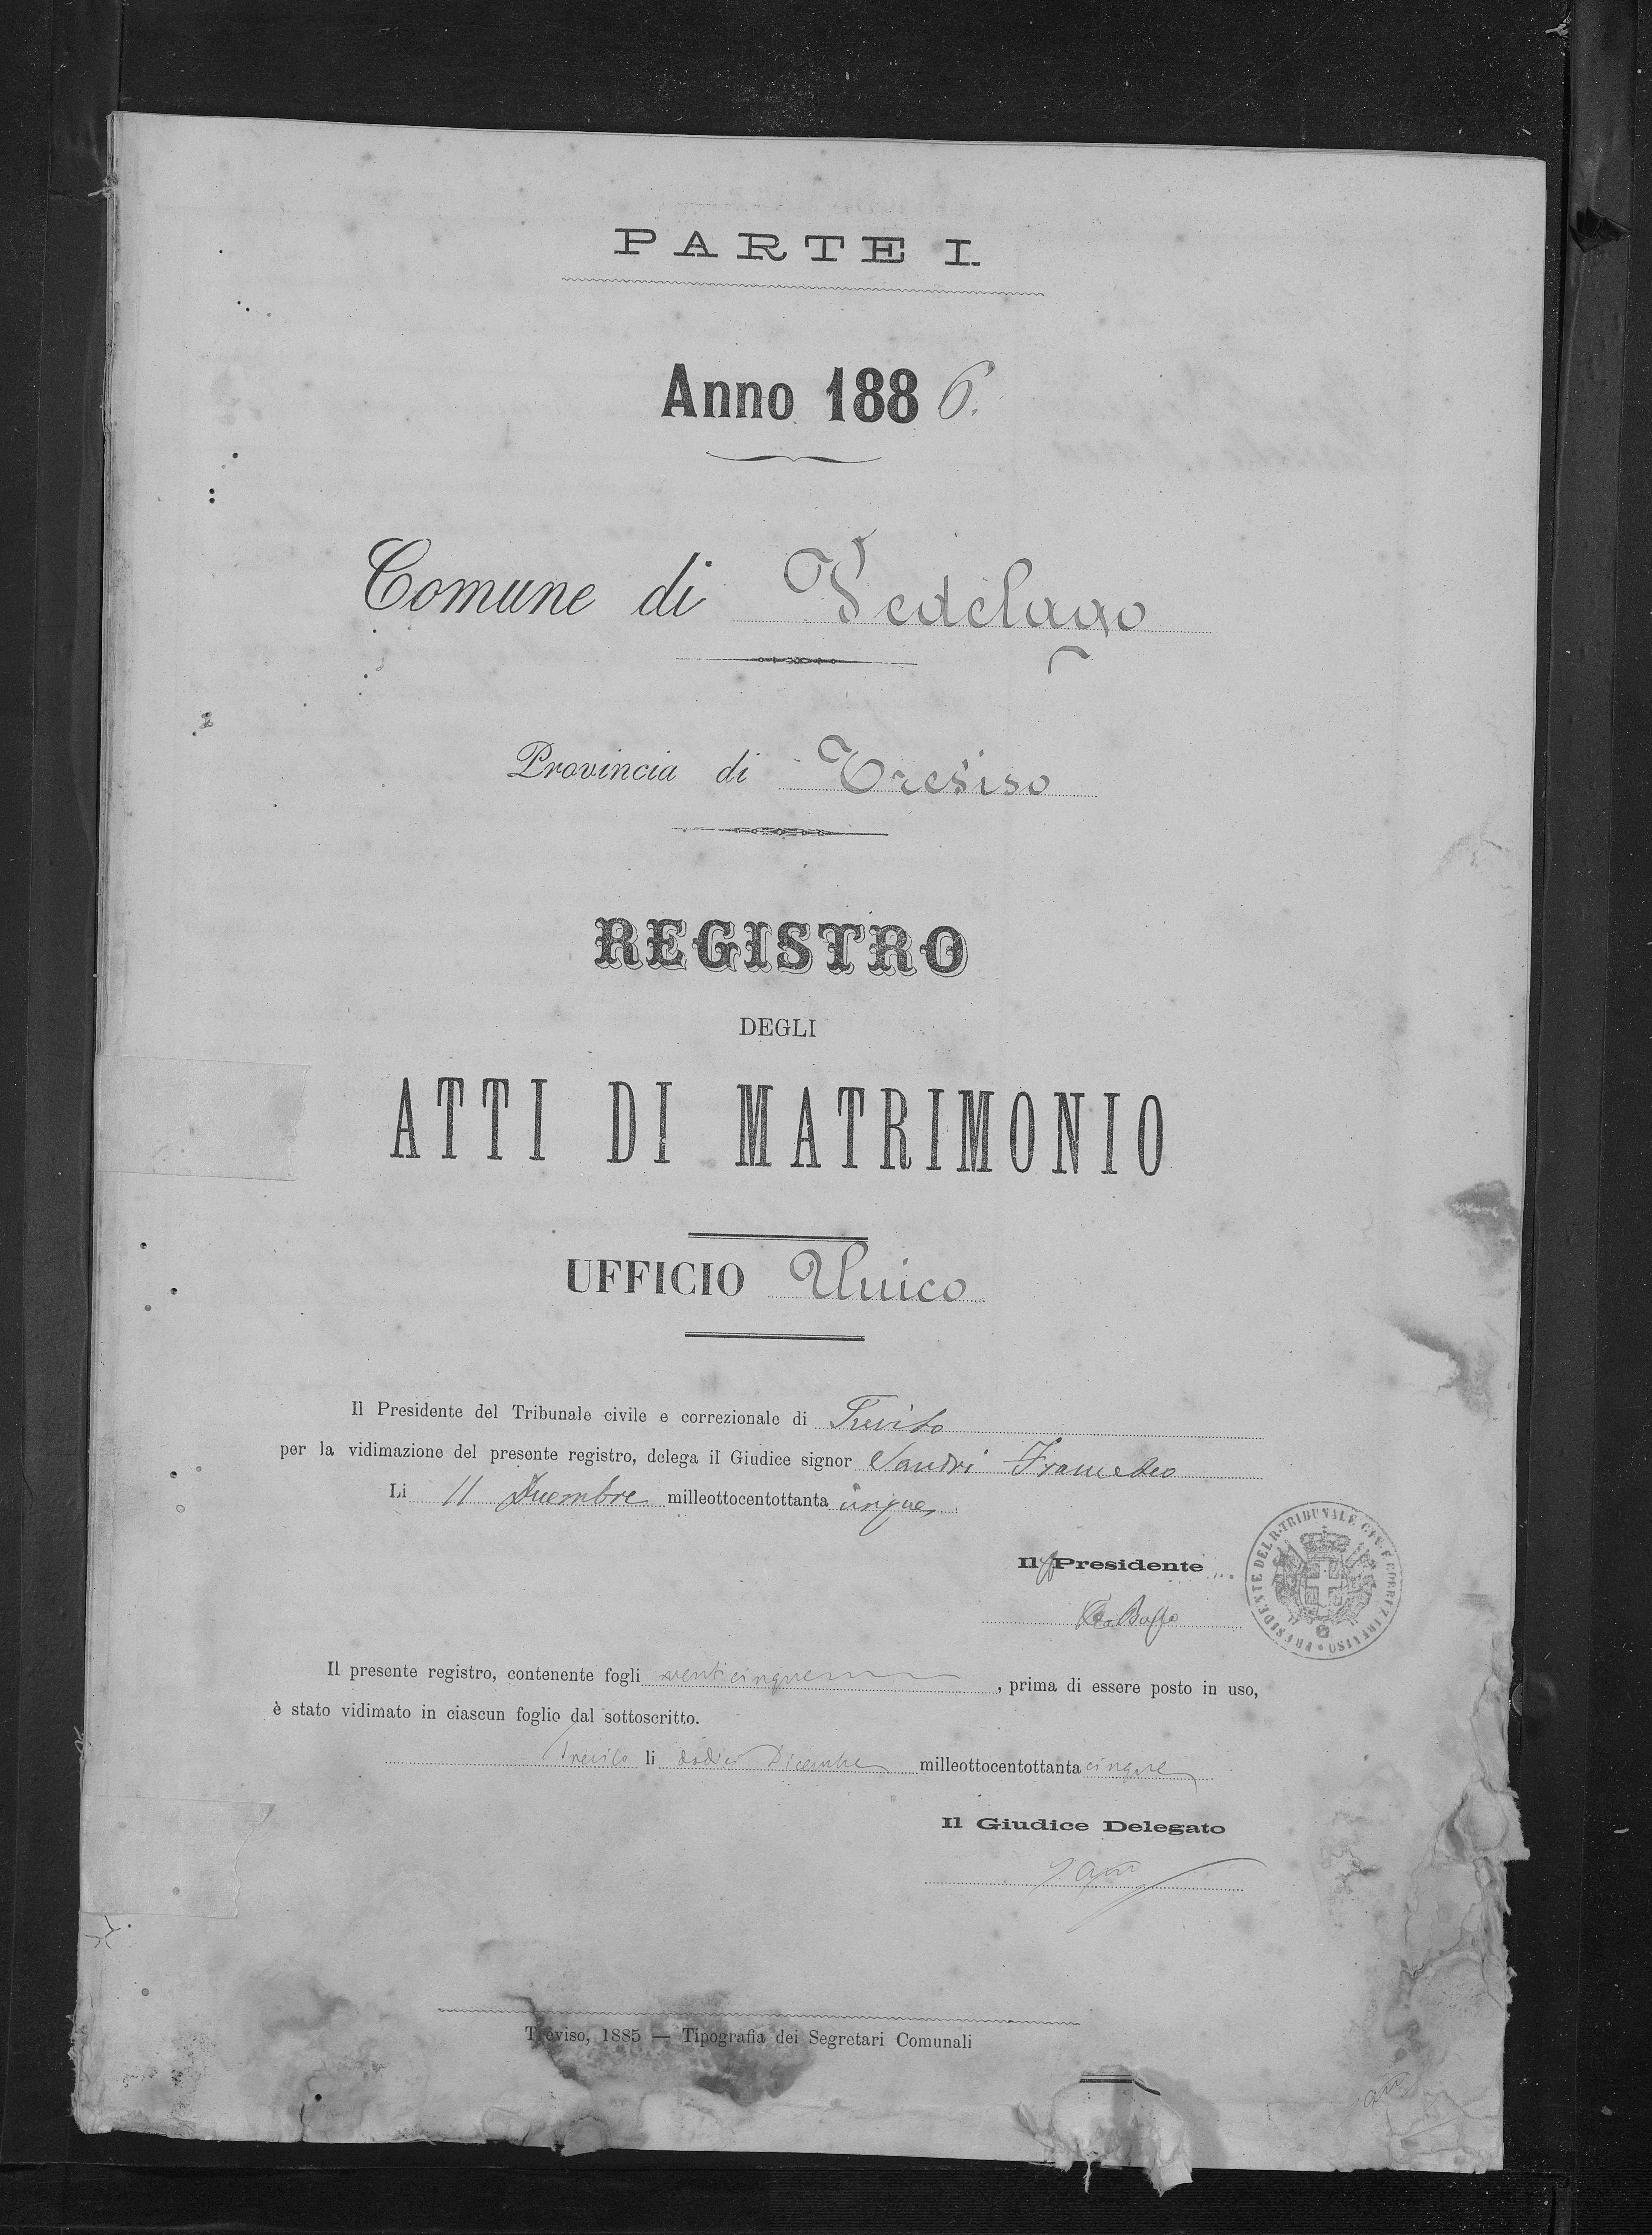 PARTE I.
Anno 1886.
Comune di Vedelago
Provincia di Treviso
REGISTRO
DEGLI
ATTI DI MATRIMONIO
UFFICIO Unico
Il Presidente del Tribunale civile e correzionale di Treviso
per la vidimazione del presente registro, delega il Giudice signor Sandri
Li 11 Dicembre milleottocentottanta cinque
Il Presidente
PRESIDENTE DEL R. TRIBUNALE CIV. E CORREZ. TREVISO
Il presente registro, contenente fogli venticinque, prima di essere posto in uso,
è stato vidimato in ciascun foglio dal sottoscritto.
Treviso li dodici Dicembre milleottocentottanta cinque
Il Giudice Delegato
Treviso, 1885 — Tipografia dei Segretari Comunali